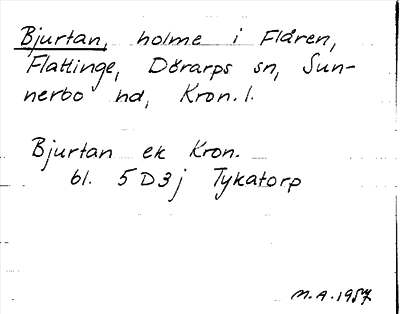 Bjurtan, holme i Flåren,
Flattinge, Dörarps sn, Sun-
nerbo hd, Kron. l.
Bjurtan ek Kron.
bl. 5D3j Tykatorp
M.A. 1957